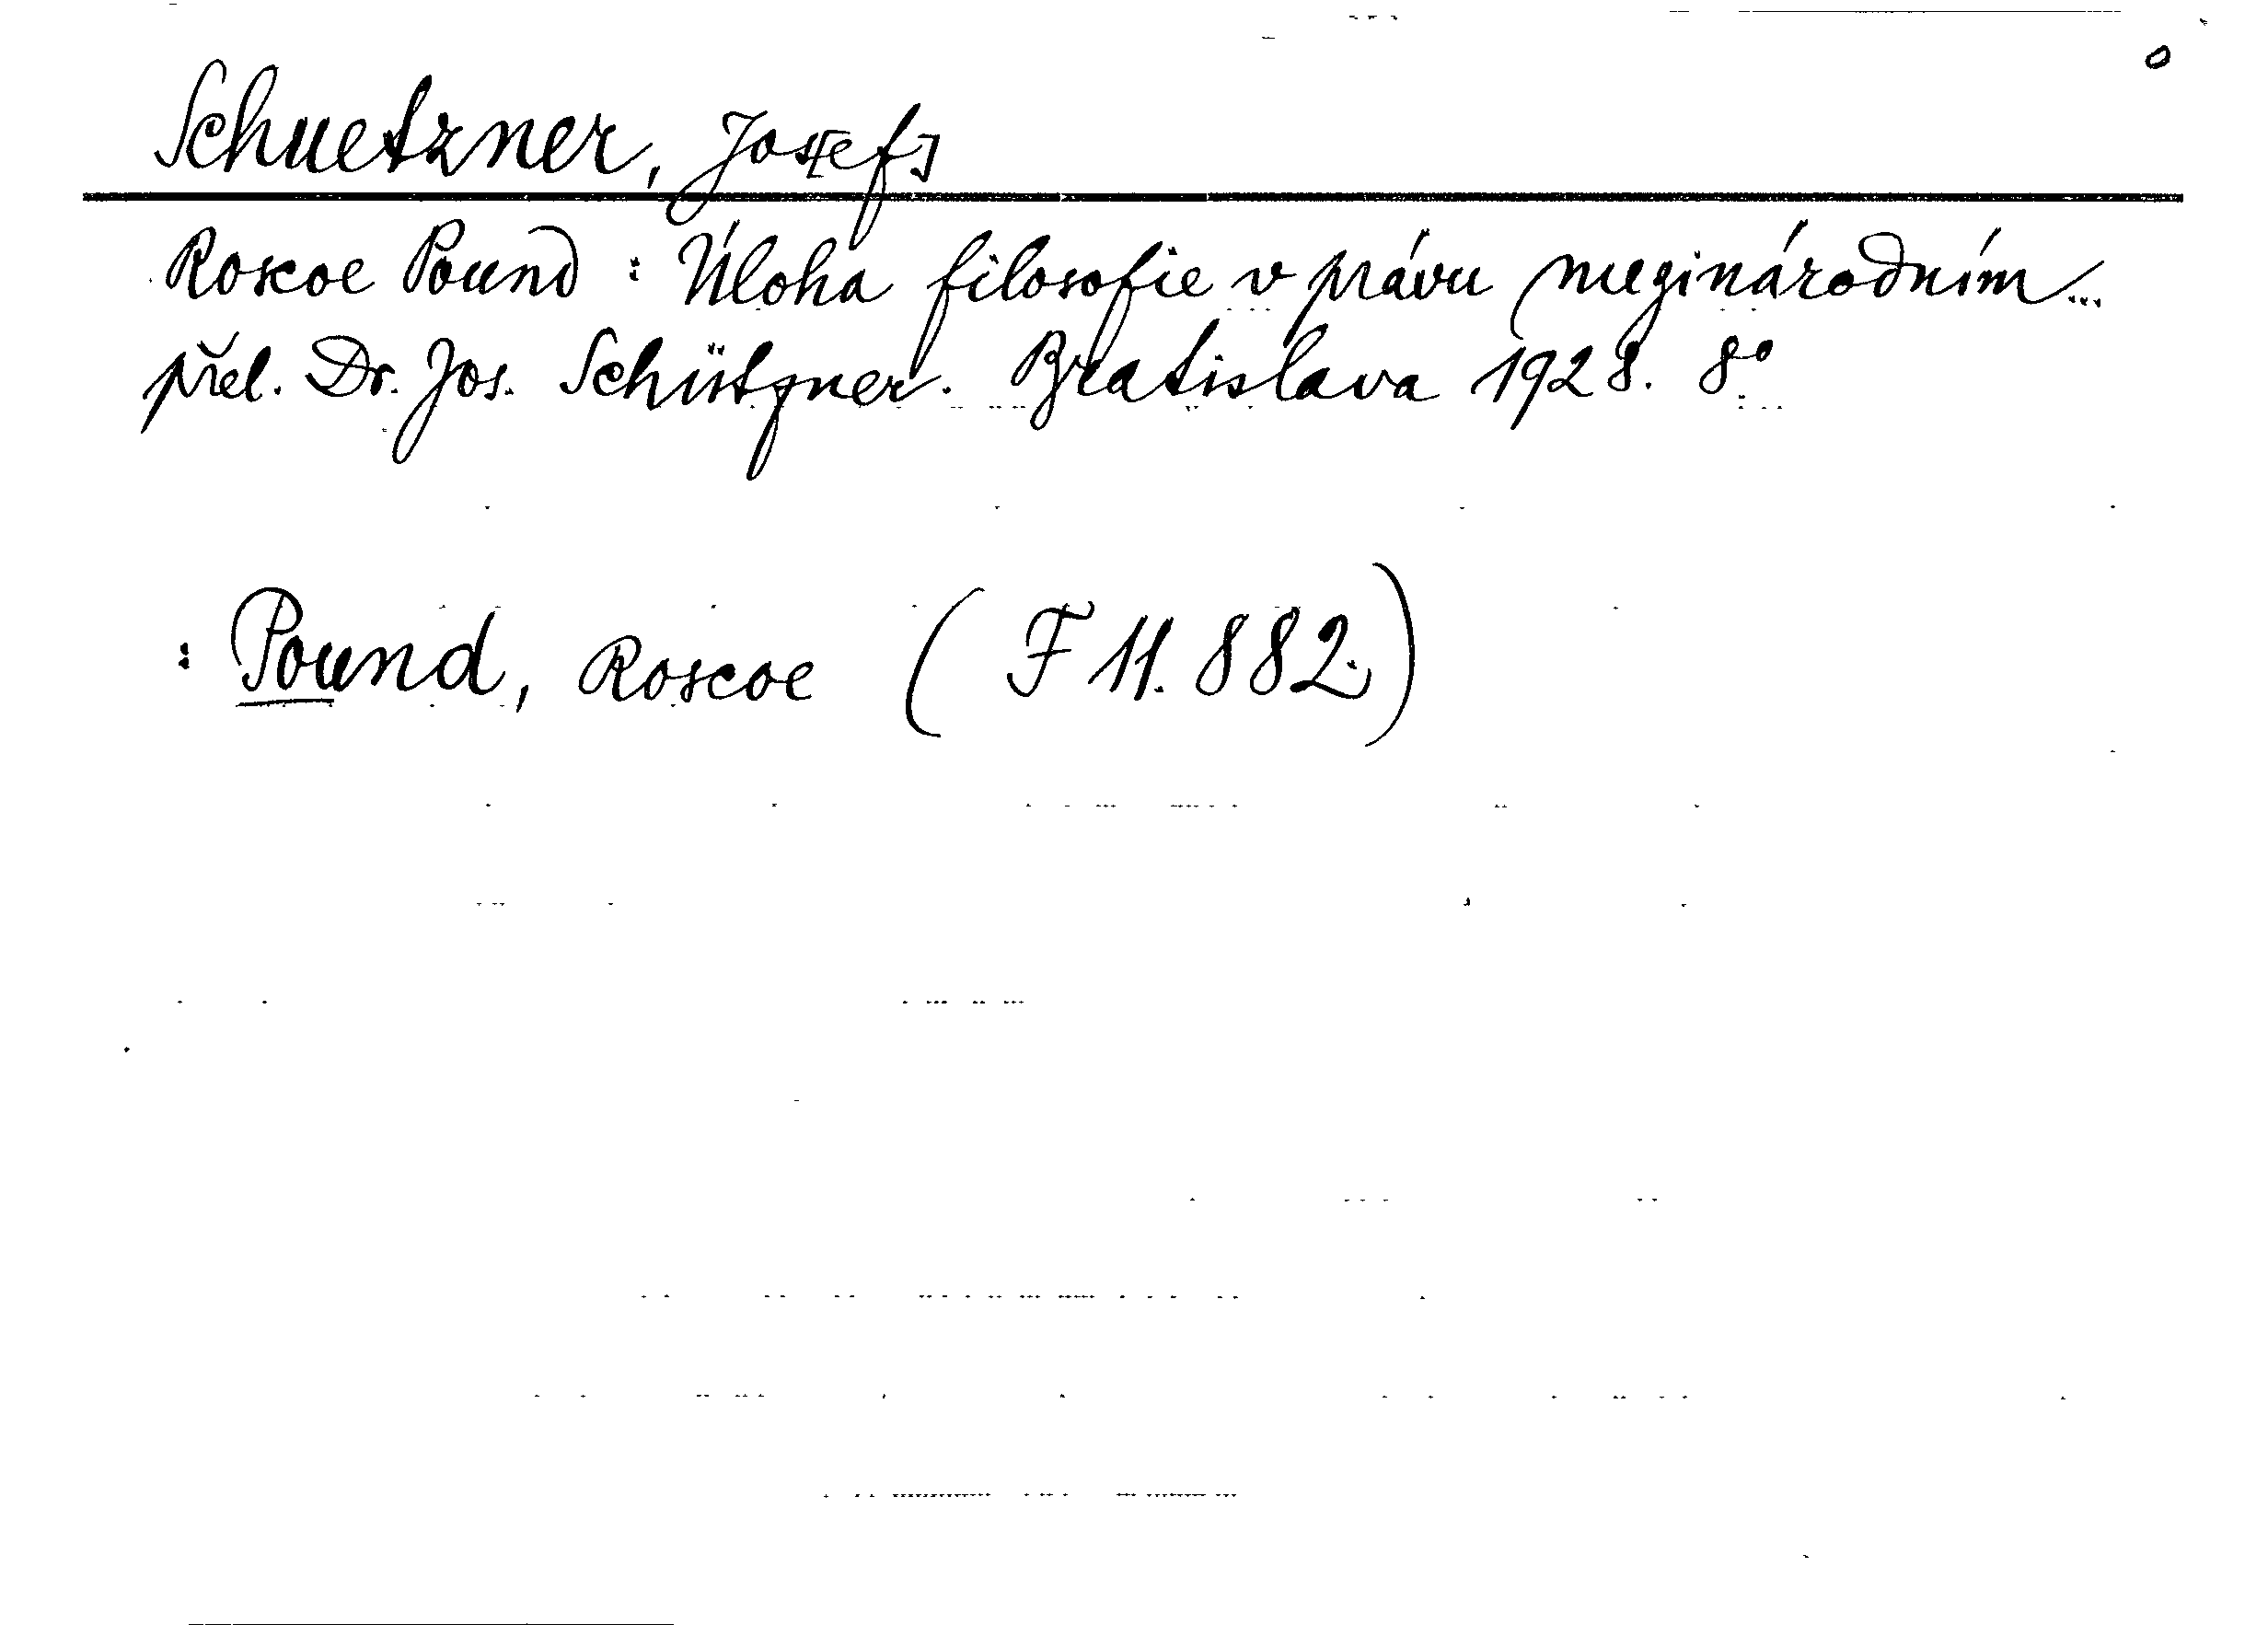 o
Schuetzner, Jos[ef]
Roscoe Pound : Úloha filosofie v právu mezinárodním...
přel. Dr. Jos. Schützner. Bratislava 1928. 8°
: Pound, Roscoe ( F 11.882.)